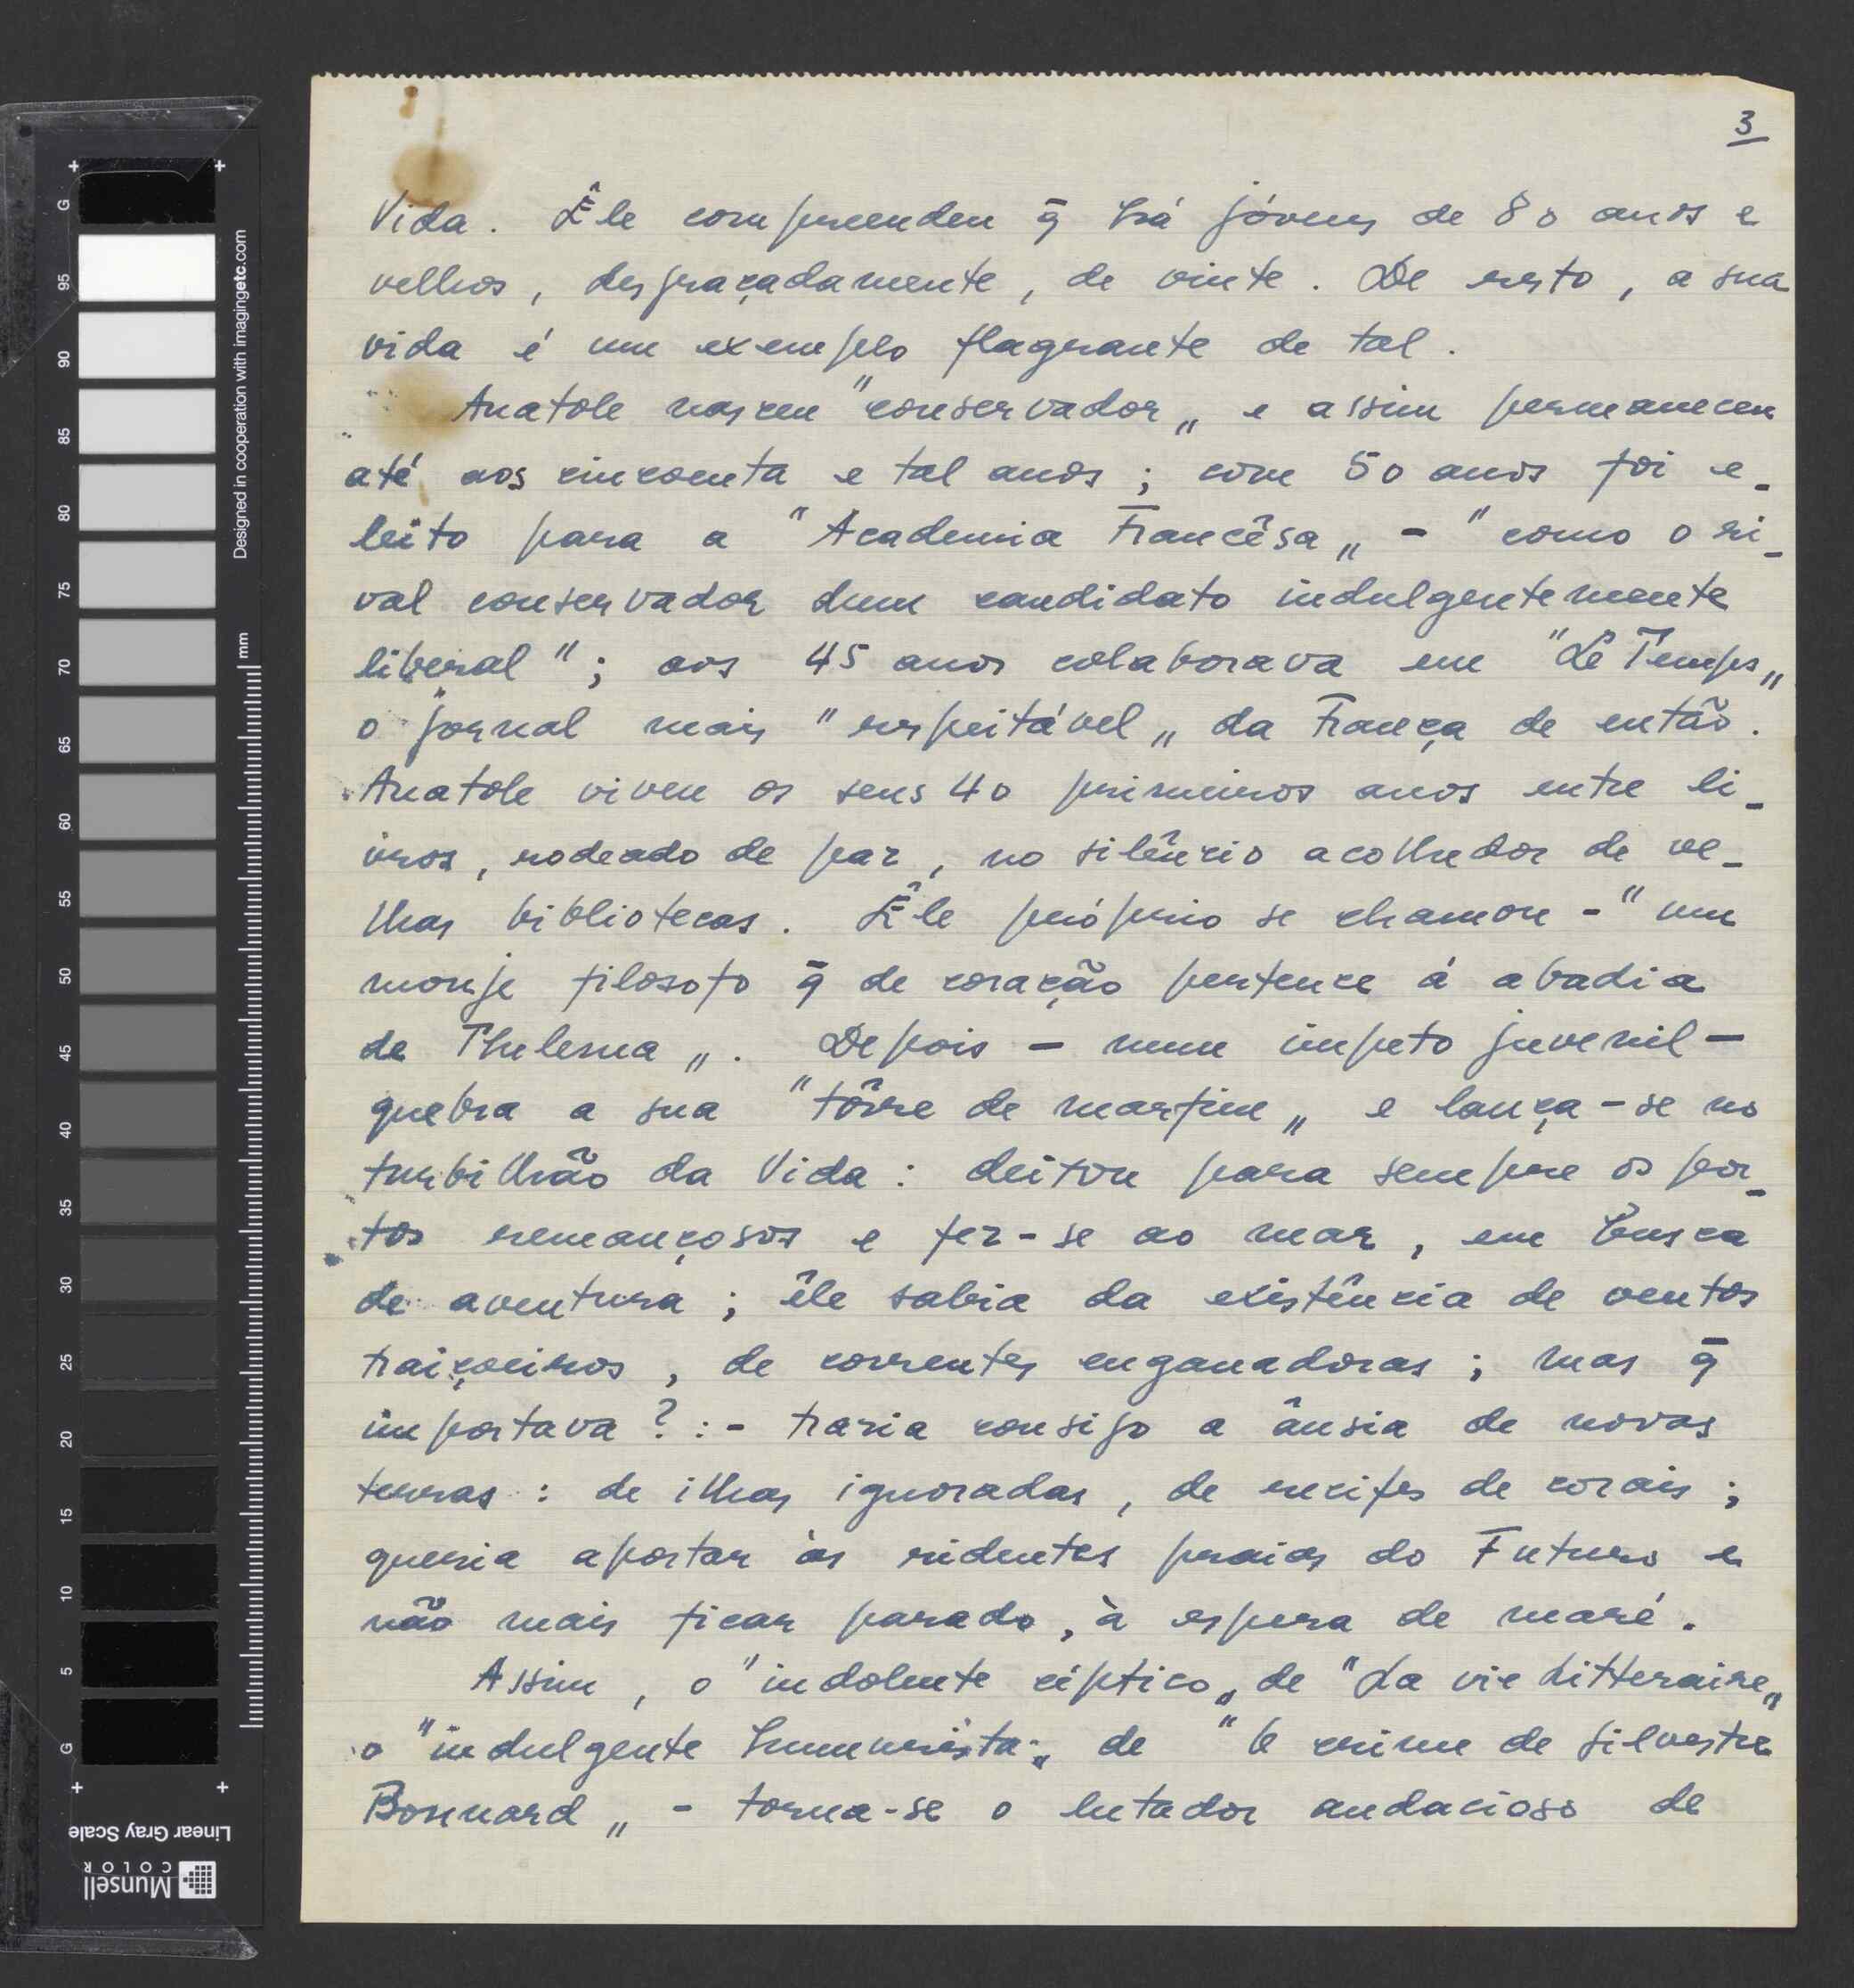 3
Vida. Êle compreendeu q̄ há jóvens de 80 anos e
velhos, desgraçadamente, de vinte. De resto, a sua
vida é um exemplo flagrante de tal.
Anatole nasceu "conservador„ e assim permaneceu
até aos cincoenta e tal anos; com 50 anos foi e-
leito para a "Academia Francêsa„ - "como o ri-
val conservador dum candidato indulgentemente
liberal"; aos 45 anos colaborava em "Le Temps„
o jornal mais "respeitável„ da França de então.
Anatole viveu os seus 40 primeiros anos entre li-
vros, rodeado de paz, no silêncio acolhedor de ve-
lhas bibliotecas. Êle próprio se chamou - "um
monje filosofo q̄ de coração pertence á abadia
de Thelema„. Depois — num impeto juvenil —
quebra a sua "tôrre de marfim„ e lança-se no
turbilhão da Vida: deitou para sempre os por-
tos remançosos e fez-se ao mar, em busca
de aventura; êle sabia da existência de ventos
traiçoeiros, de correntes enganadoras; mas q̄
importava?:- trazia consigo a ânsia de novas
terras: de ilhas ignoradas, de recifes de corais;
queria aportar às ridentes praias do Futuro e
não mais ficar parado, à espera de maré.
Assim, o "indolente céptico„ de "La vie Litteraire„
o "indulgente humorista„ de "O crime de Silvestre
Bonnard„ - torna-se o lutador audacioso de
Designed in cooperation with imagingetc.com
mm
G 95 90 85 80 75 70 65 60 55 50 45 40 35 30 25 20 15 10 5 G
Linear Gray Scale
Munsell
COLOR